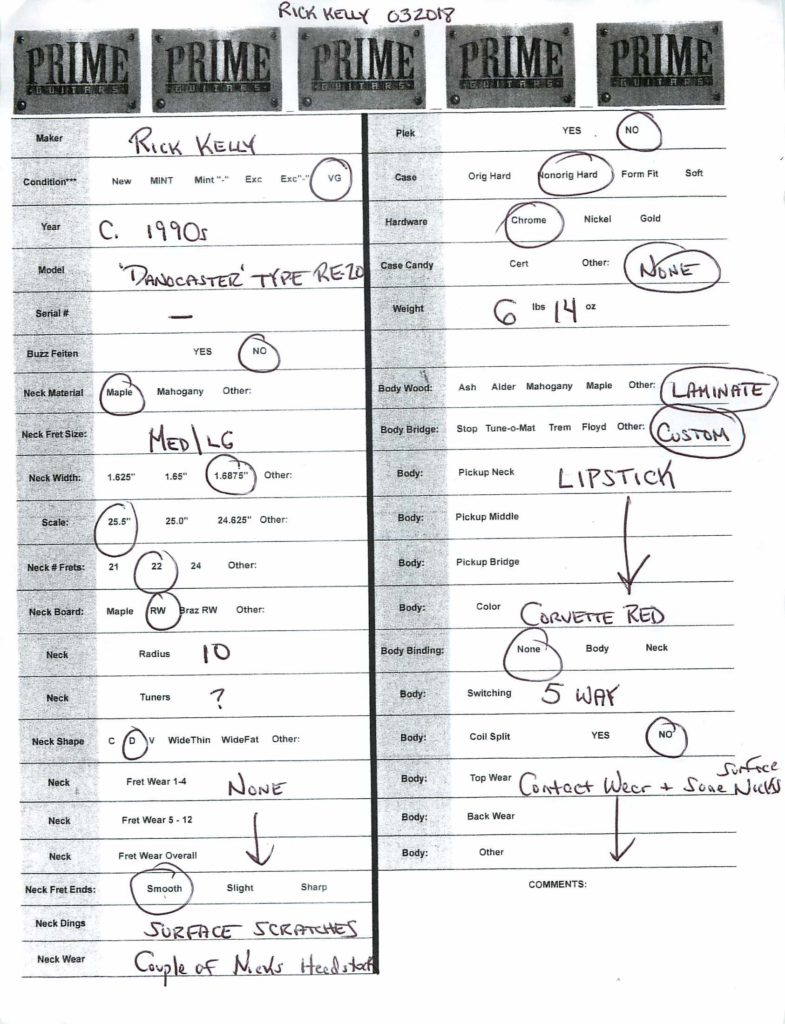 RICK KELLY 032018
PRIME GUITARS PRIME GUITARS PRIME GUITARS PRIME GUITARS PRIME GUITARS
Maker RICK KELLY
Condition*** New MINT Mint "-" Exc Exc"-" VG
Year C. 1990s
Model 'DANOCASTER' TYPE RE-20
Serial # —
Buzz Feiten YES NO
Neck Material Maple Mahogany Other:
Neck Fret Size: MED/LG
Neck Width: 1.625" 1.65" 1.6875" Other:
Scale: 25.5" 25.0" 24.625" Other:
Neck # Frets: 21 22 24 Other:
Neck Board: Maple RW Braz RW Other:
Neck Radius 10
Neck Tuners ?
Neck Shape C D V WideThin WideFat Other:
Neck Fret Wear 1-4 NONE
Neck Fret Wear 5 - 12
Neck Fret Wear Overall
Neck Fret Ends: Smooth Slight Sharp
Neck Dings SURFACE SCRATCHES
Neck Wear Couple of Nicks Headstock
Plek YES NO
Case Orig Hard Nonorig Hard Form Fit Soft
Hardware Chrome Nickel Gold
Case Candy Cert Other: NONE
Weight 6 lbs 14 oz
Body Wood: Ash Alder Mahogany Maple Other: LAMINATE
Body Bridge: Stop Tune-o-Mat Trem Floyd Other: CUSTOM
Body: Pickup Neck LIPSTICK
Body: Pickup Middle
Body: Pickup Bridge
Body: Color CORVETTE RED
Body Binding: None Body Neck
Body: Switching 5 WAY
Body: Coil Split YES NO
Body: Top Wear Contact Wear + Some Surface Nicks
Body: Back Wear
Body: Other
COMMENTS: